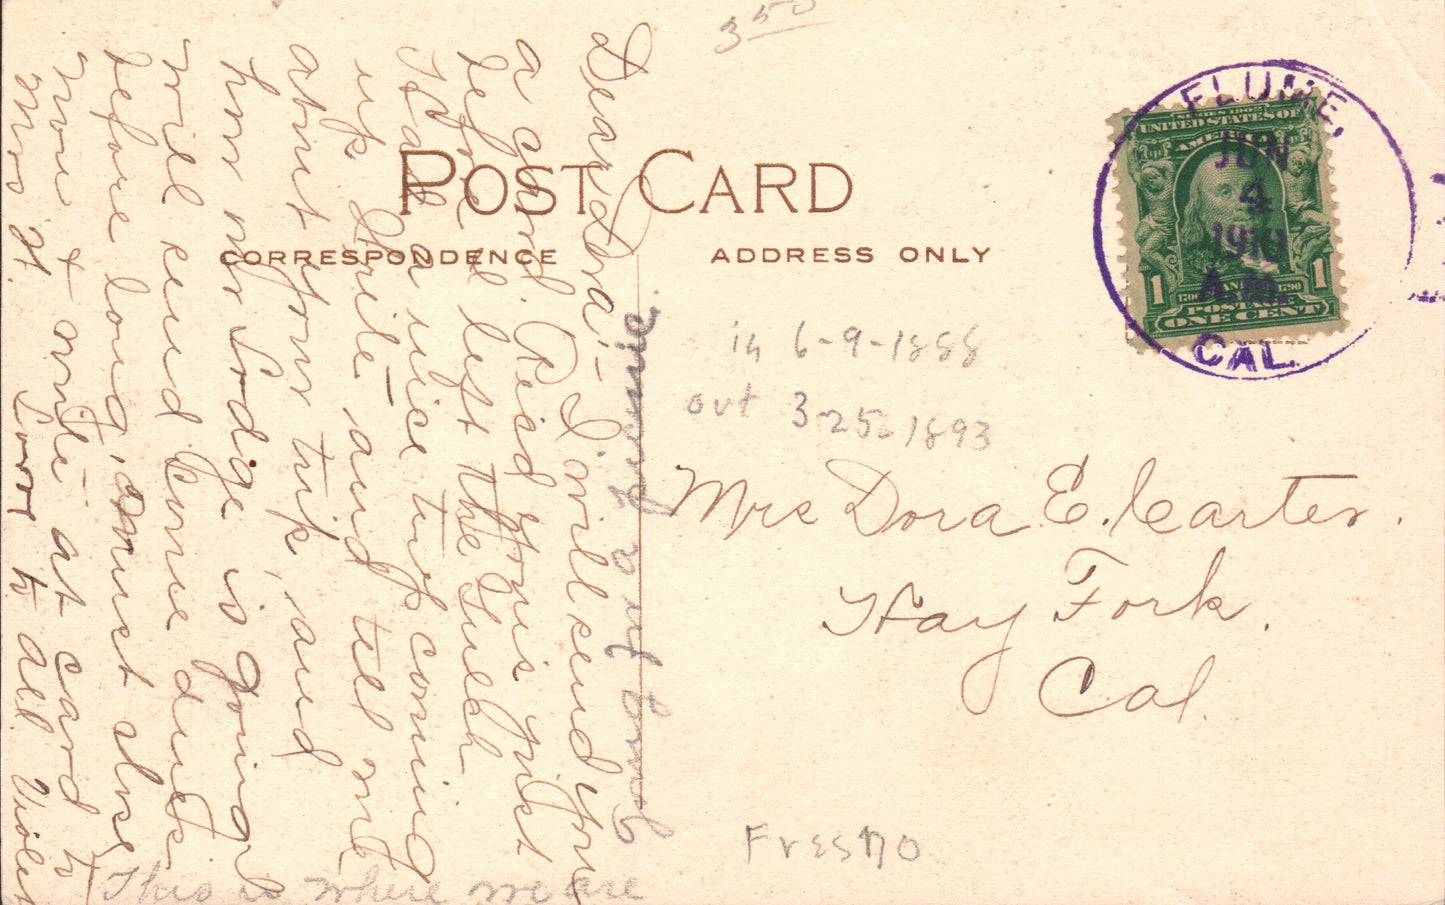 350
POST CARD
CORRESPONDENCE
ADDRESS ONLY
FLUME,
JUN
4
1910
A.M.
CAL.
SERIES 1902
UNITED STATES OF
AMERICA
1
1
1706
1790
POSTAGE
ONE CENT
in 6-9-1888
out 3-25-1893
Mrs Dora E. Carter.
Hay Fork.
Cal.
Fresno
Dear Dora:- I will send you
a card. Reid yours just
before I left the Gulch
Had a nice trip coming
up. Write - and tell me
about your trip, and
how our Lodge is going. I
will send some ducks
before long, must close
now & write at card to
Mrs H. Love to all Violet
This is where we are
going for a picnic.